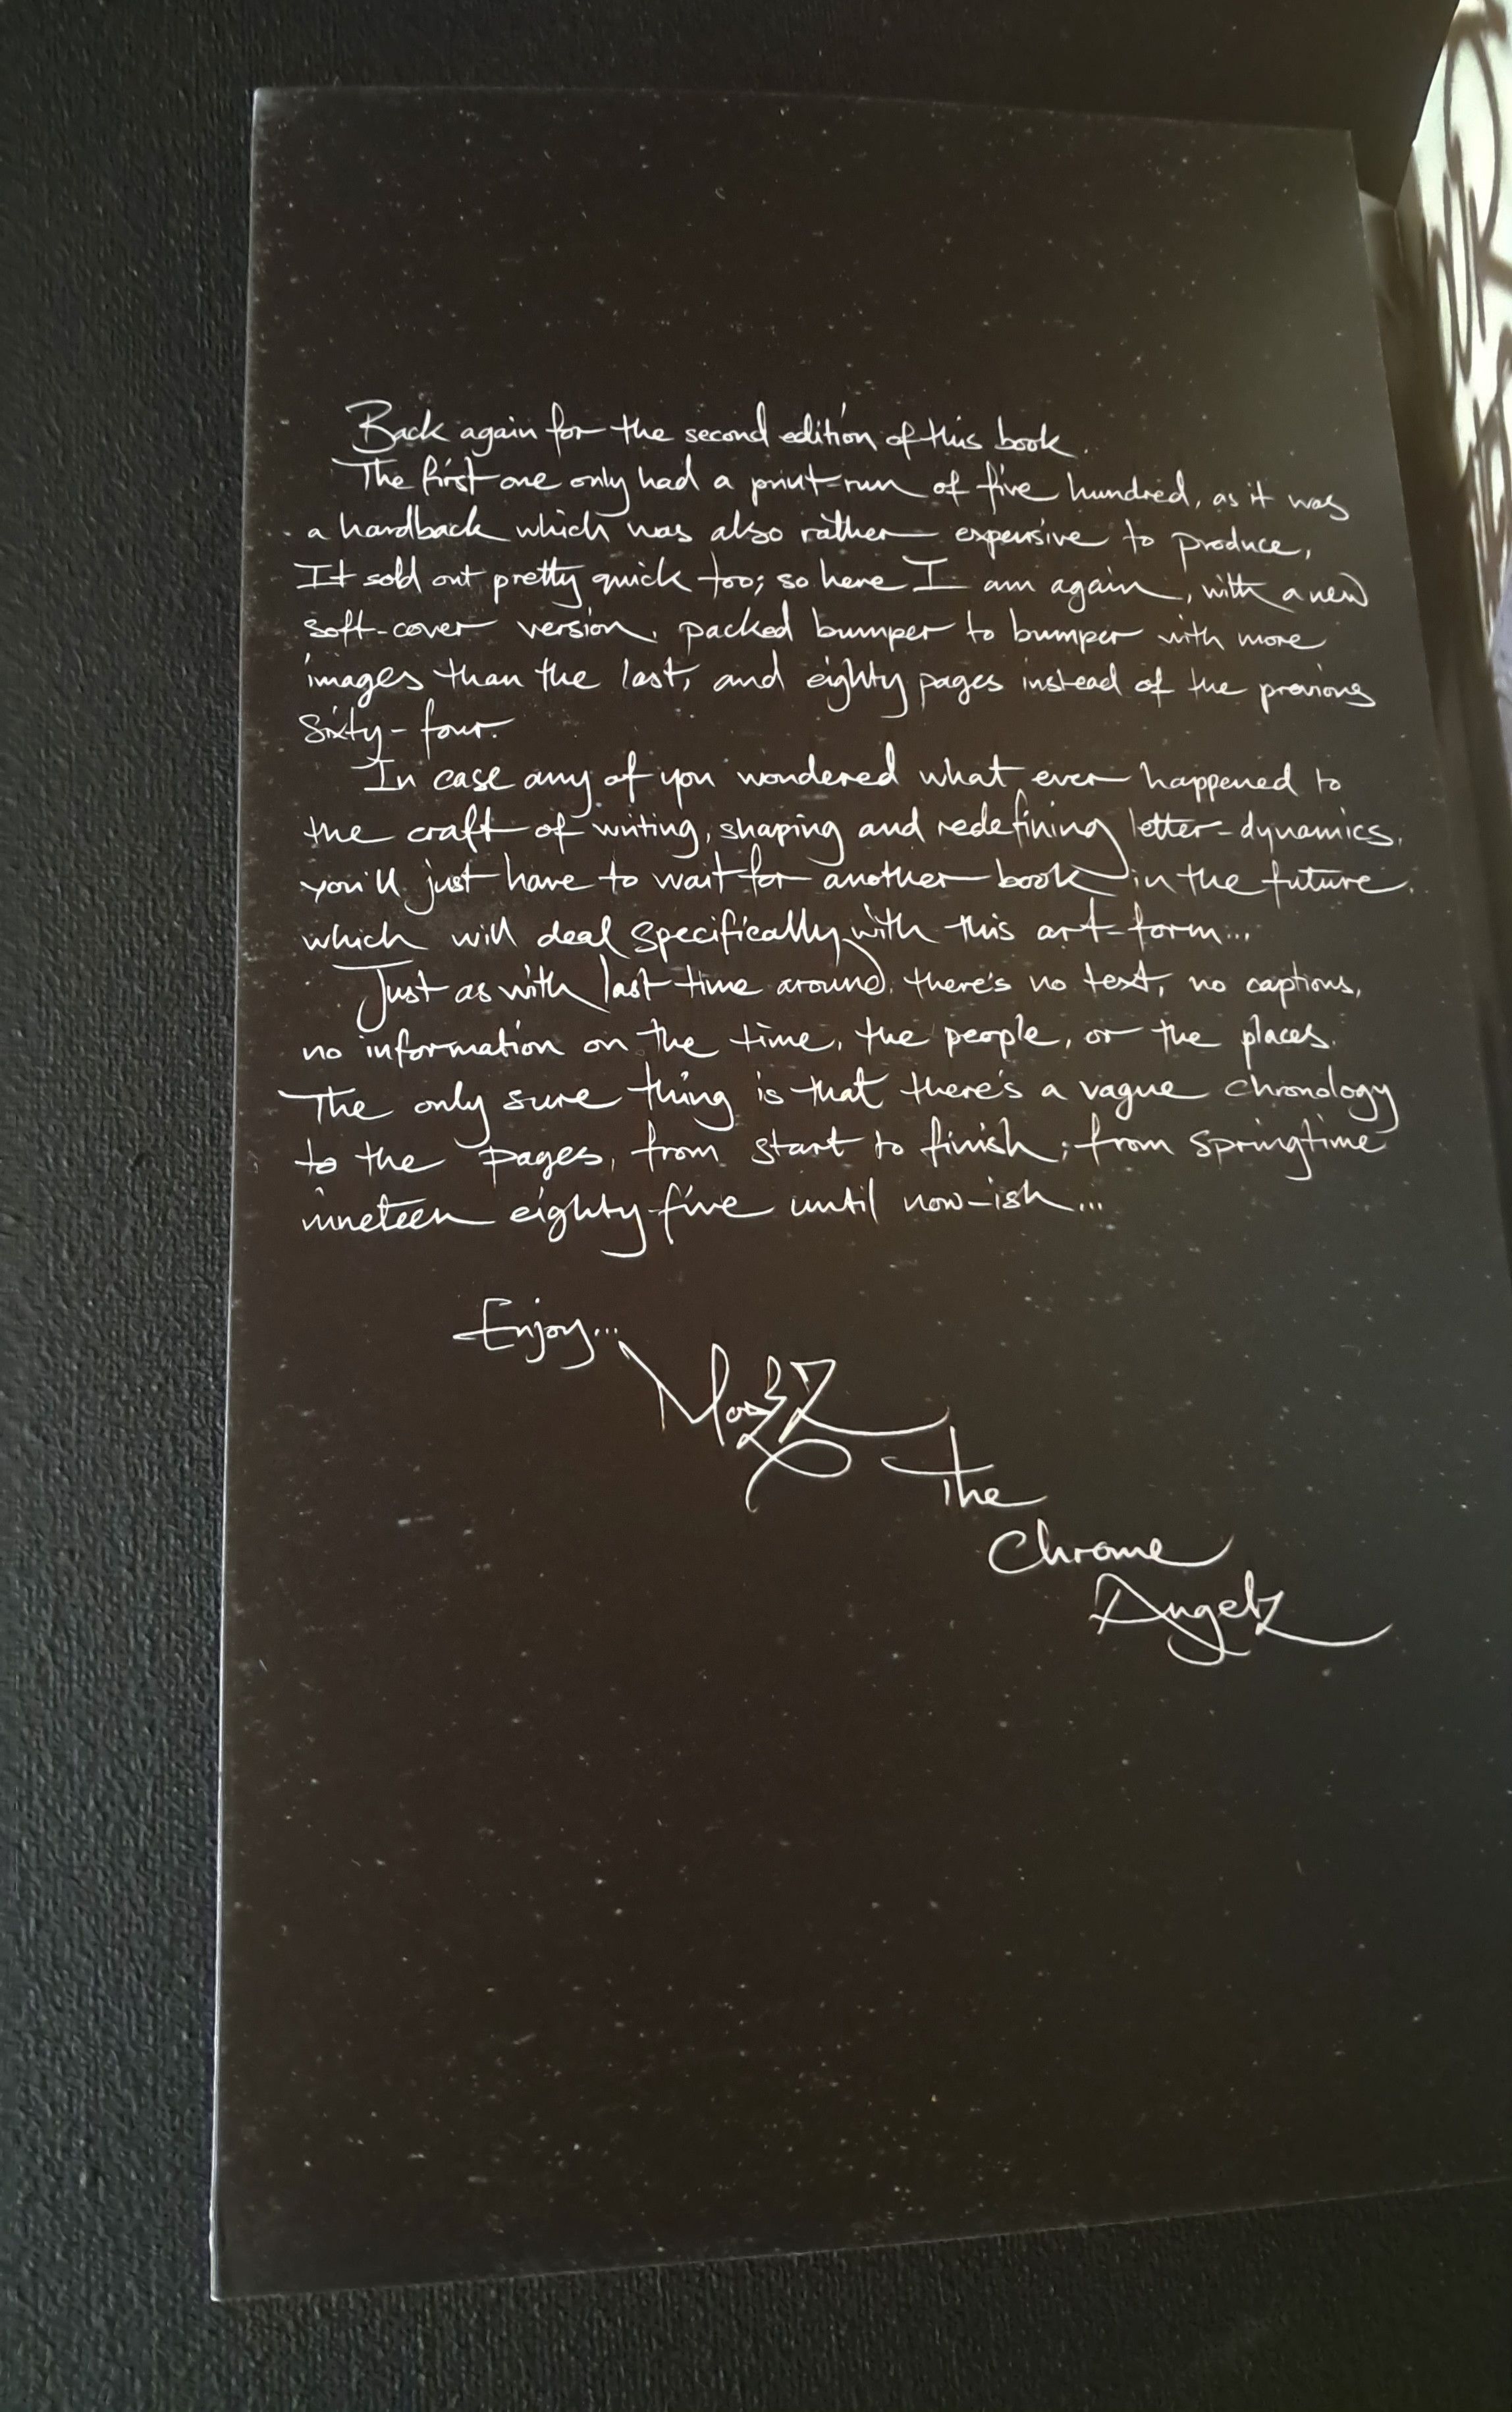 Back again for the second edition of this book.
The first one only had a print-run of five hundred, as it was
a hardback which was also rather expensive to produce,
It sold out pretty quick too; so here I am again, with a new
soft-cover version, packed bumper to bumper with more
images than the last, and eighty pages instead of the previous
sixty-four.
In case any of you wondered what ever happened to
the craft of writing, shaping and redefining letter-dynamics,
you'll just have to wait for another book in the future,
which will deal specifically with this art-form...
Just as with last time around, there's no text, no captions,
no information on the time, the people, or the places.
The only sure thing is that there's a vague chronology
to the pages, from start to finish; from Springtime
nineteen eighty-five until now-ish...
Enjoy...
The
Chrome
Angelz